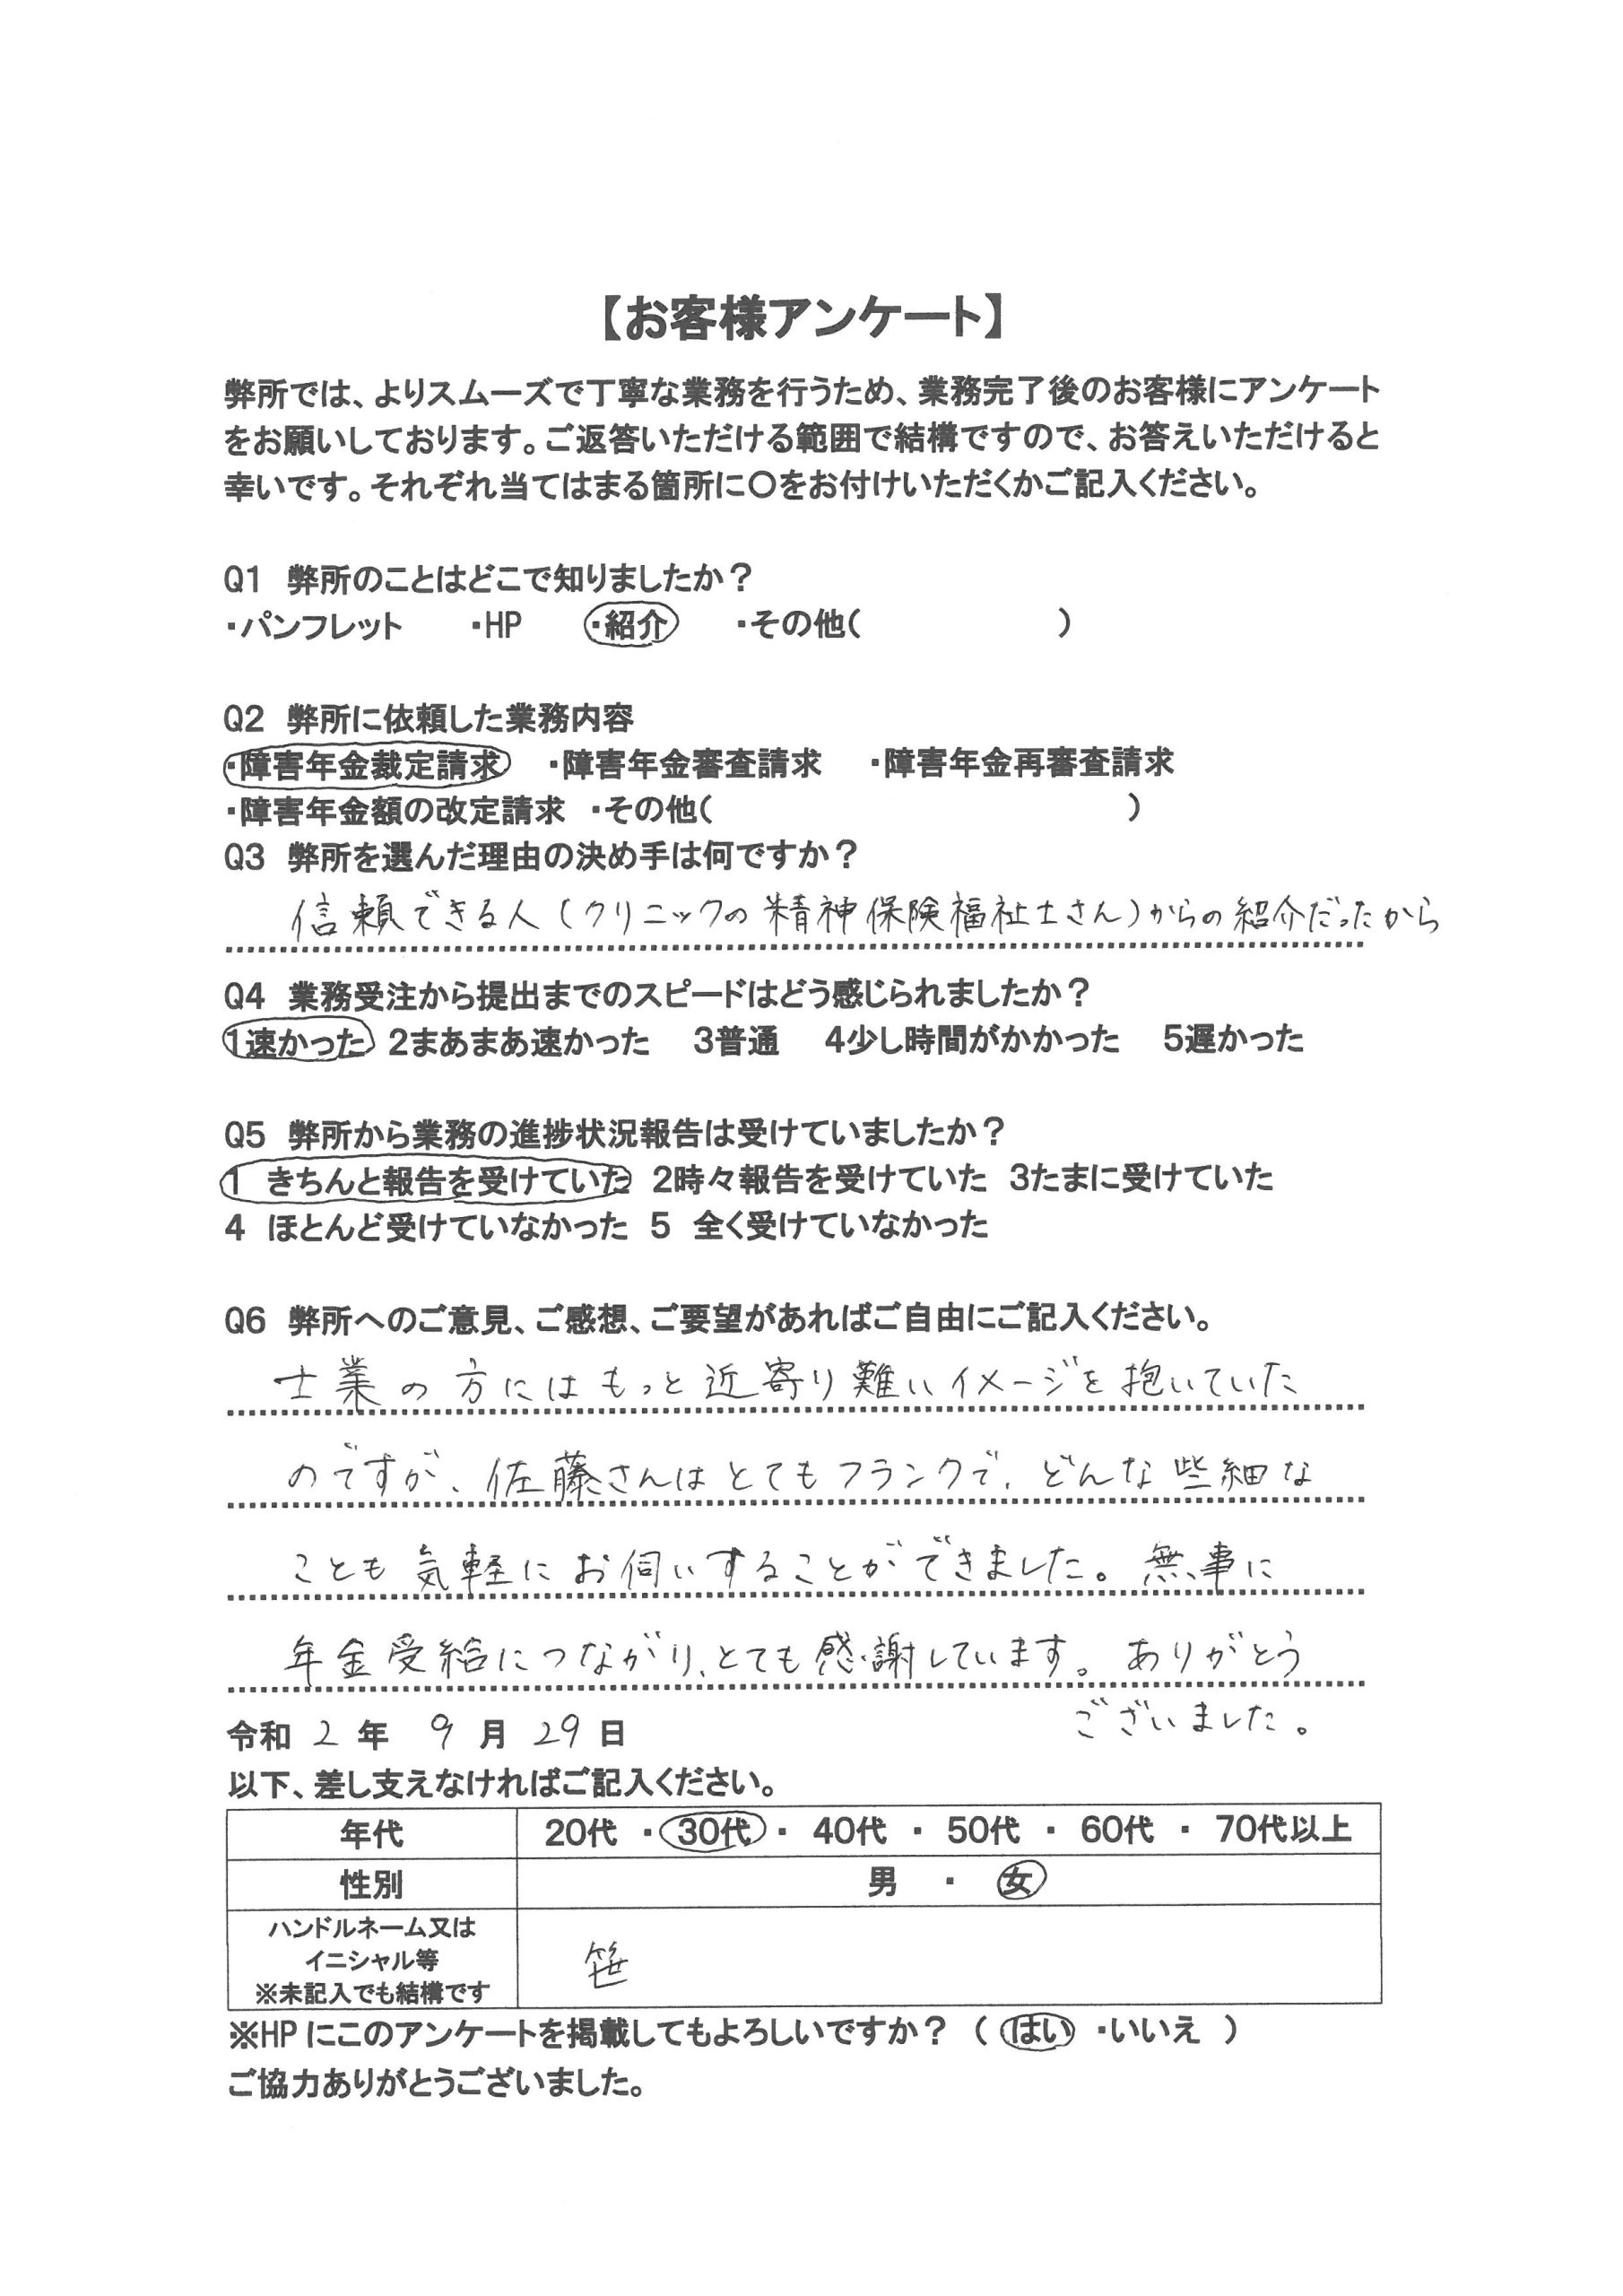 【お客様アンケート】
弊所では、よりスムーズで丁寧な業務を行うため、業務完了後のお客様にアンケート
をお願いしております。ご返答いただける範囲で結構ですので、お答えいただけると
幸いです。それぞれ当てはまる箇所に〇をお付けいただくかご記入ください。
Q1 弊所のことはどこで知りましたか？
・パンフレット ・HP ・紹介 ・その他( )
Q2 弊所に依頼した業務内容
・障害年金裁定請求 ・障害年金審査請求 ・障害年金再審査請求
・障害年金額の改定請求 ・その他( )
Q3 弊所を選んだ理由の決め手は何ですか？
信頼できる人(クリニックの精神保険福祉士さん)からの紹介だったから
Q4 業務受注から提出までのスピードはどう感じられましたか？
1速かった 2まあまあ速かった 3普通 4少し時間がかかった 5遅かった
Q5 弊所から業務の進捗状況報告は受けていましたか？
1 きちんと報告を受けていた 2時々報告を受けていた 3たまに受けていた
4 ほとんど受けていなかった 5 全く受けていなかった
Q6 弊所へのご意見、ご感想、ご要望があればご自由にご記入ください。
士業の方にはもっと近寄り難いイメージを抱いていた
のですが、佐藤さんはとてもフランクで、どんな些細な
ことも気軽にお伺いすることができました。無事に
年金受給につながり、とても感謝しています。ありがとう
ございました。
令和 2 年 9 月 29 日
以下、差し支えなければご記入ください。
年代 20代 ・ 30代 ・ 40代 ・ 50代 ・ 60代 ・ 70代以上
性別 男 ・ 女
ハンドルネーム又は
イニシャル等
※未記入でも結構です
笹
※HPにこのアンケートを掲載してもよろしいですか？ ( はい ・いいえ )
ご協力ありがとうございました。